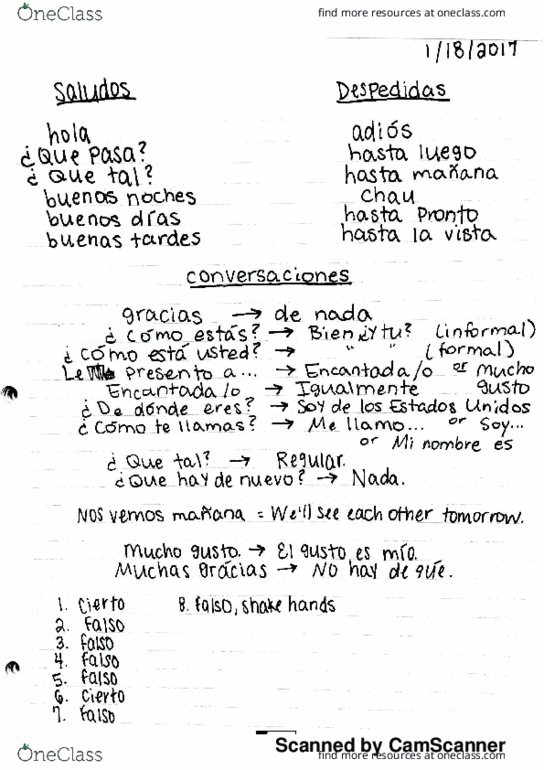 OneClass
find more resources at oneclass.com
1/18/2017
Saludos
hola
¿Que pasa?
¿Que tal?
buenos noches
buenos días
buenas tardes
Despedidas
adiós
hasta luego
hasta mañana
chau
hasta pronto
hasta la vista
conversaciones
gracias → de nada
¿Cómo estás? → Bien ¿Y tu? (informal)
¿Cómo está usted? → " " (formal)
Le presento a... → Encantada/o or mucho gusto
Encantada/o → Igualmente
¿De dónde eres? → Soy de los Estados Unidos
¿Cómo te llamas? → Me llamo... or Soy...
or Mi nombre es
¿Que tal? → Regular.
¿Que hay de nuevo? → Nada.
Nos vemos mañana = We'll see each other tomorrow.
Mucho gusto. → El gusto es mío.
Muchas grácias → No hay de qúe.
1. Cierto
2. Falso
3. Falso
4. Falso
5. Falso
6. Cierto
7. Falso
8. falso, shake hands
Scanned by CamScanner
OneClass
find more resources at oneclass.com